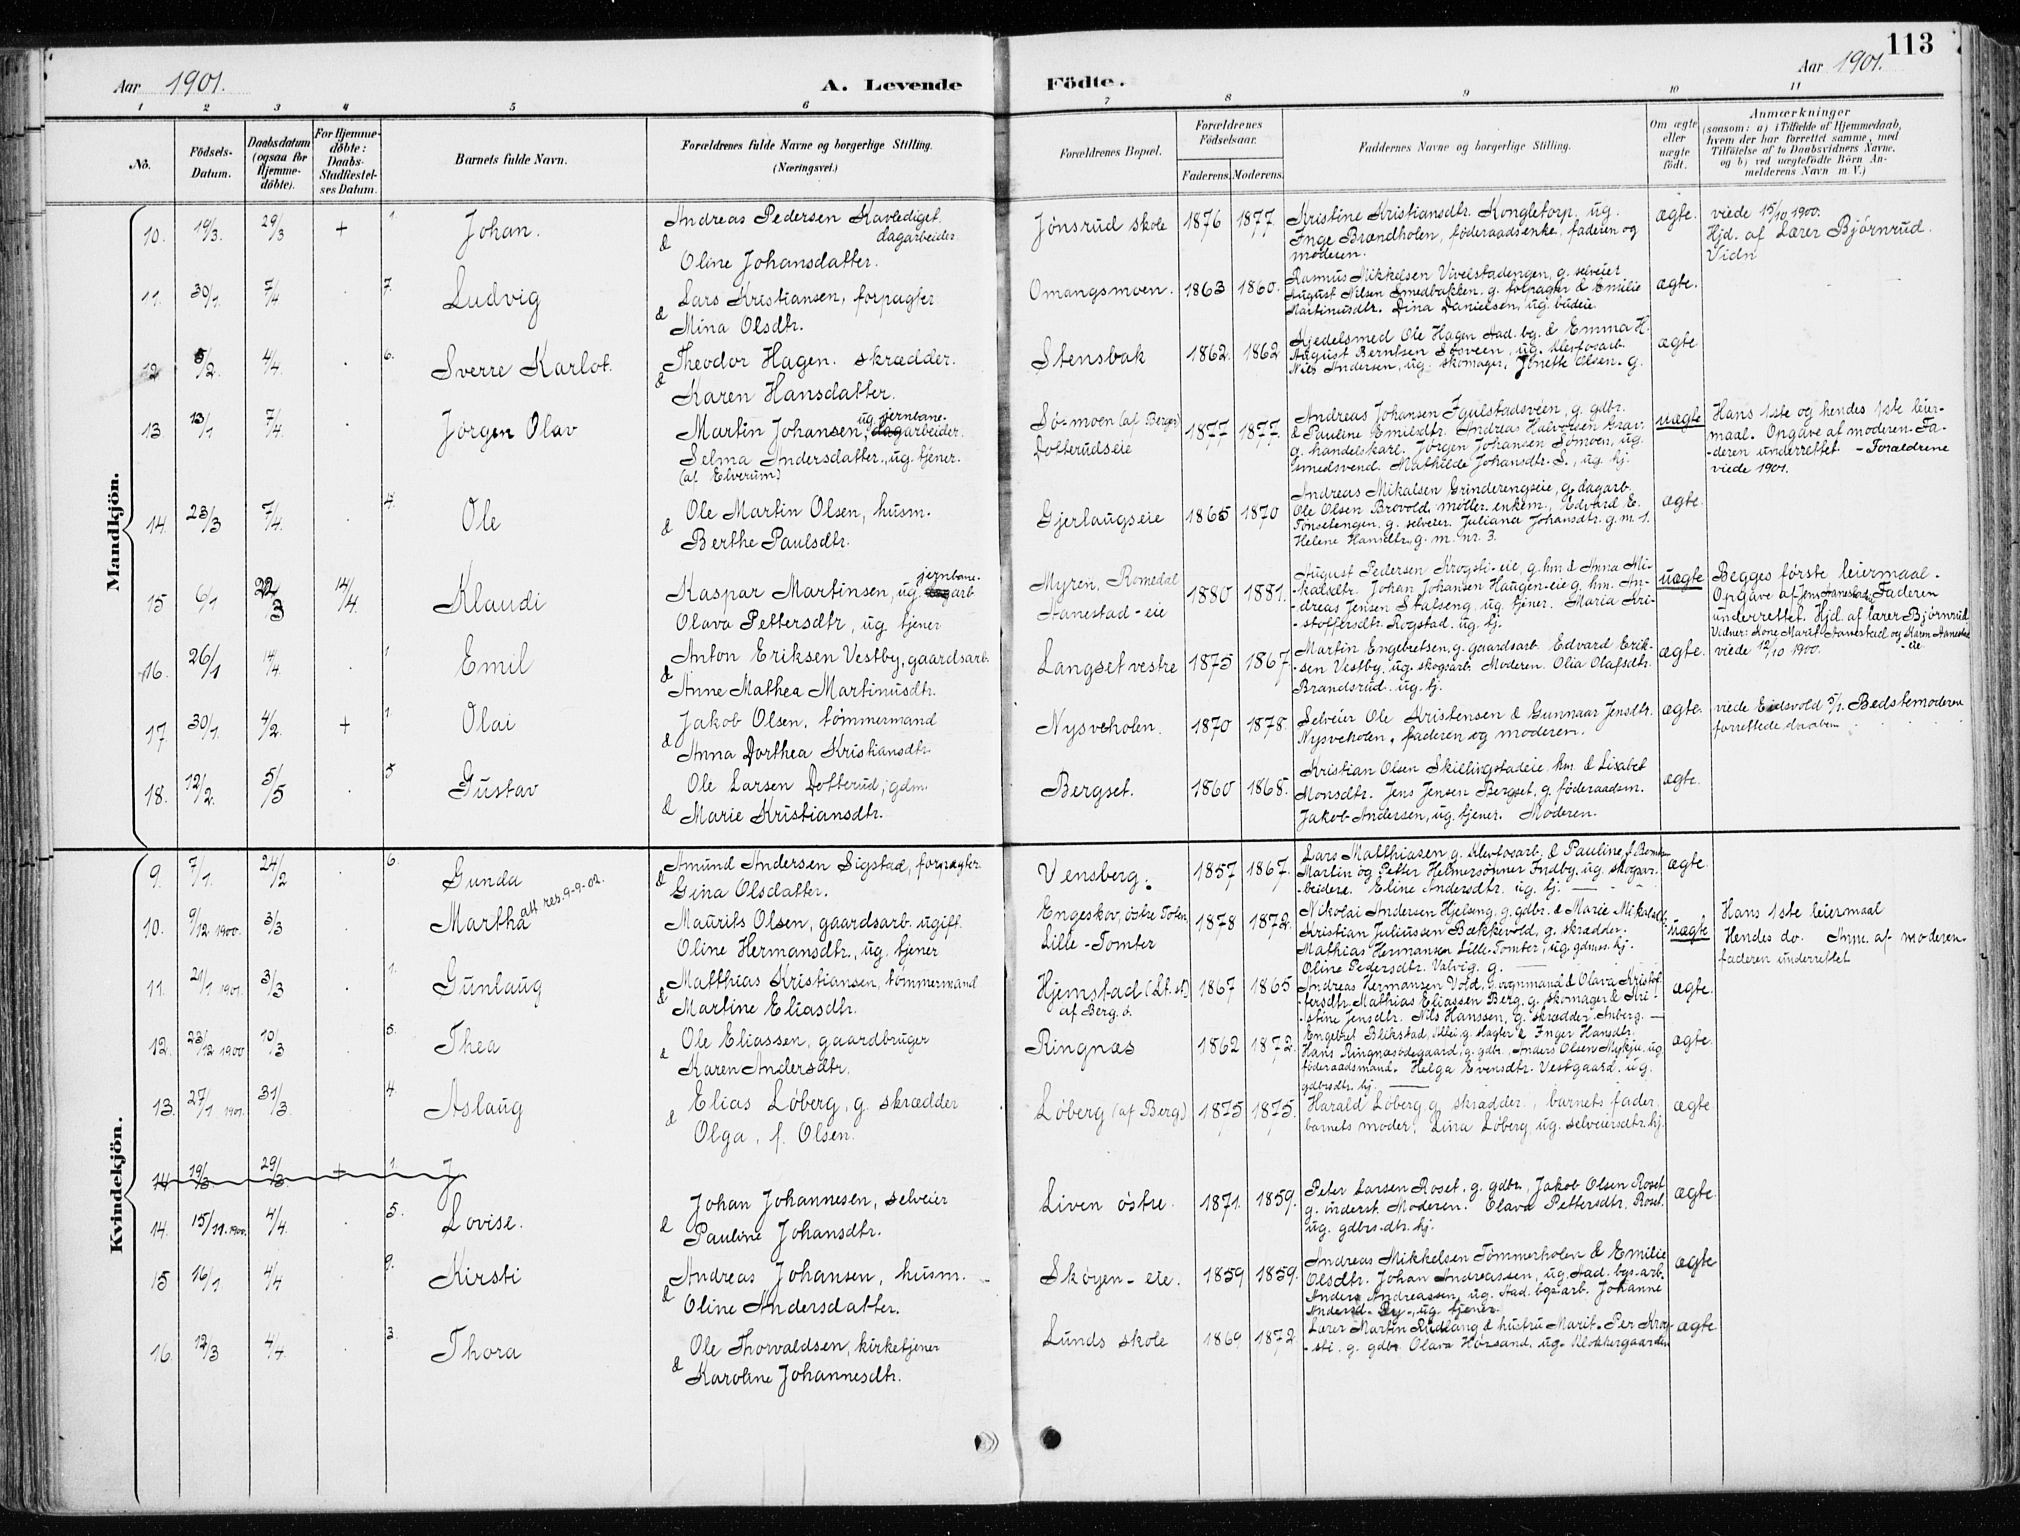 113
Aar 1901.
A. Levende Födte.
Aar 1901.
1 2 3 4 5 6 7 8 9 10 11
No.
Födsels-Datum.
Daabsdatum (ogsaa for Hjemmedöbte).
For Hjemmedöbte: Daabs-Stadfæstelses Datum.
Barnets fulde Navn.
Forældrenes fulde Navne og borgerlige Stilling.
(Næringsvei.)
Forældrenes Bopæl.
Forældrenes Födselsaar.
Faderens. Moderens.
Faddernes Navne og borgerlige Stilling.
Om ægte eller uægte födt.
Anmærkninger
(saasom: a) i Tilfælde af Hjemmedaab,
hvem der har forrettet samme, med
Tilföielse af to Daabsvidners Navne,
og b) ved uægtefödte Börn An-
melderens Navn m. V.)
Mandkjön.
10. 19/3. 29/3 + 1. Johan.
Andreas Pedersen Kavlediget. dagarbeider
& Oline Johansdatter.
Jønsrud skole 1876 1877.
Kristine Kristiansdtr. Kongletorp, ug.
Inge Brændholen, føderaadsenke, faderen og
moderen.
ægte.
viede 15/10 1900.
Hjd. af Lærer Bjørnrud.
Vidn
11. 30/1. 7/4 . 7. Ludvig
Lars Kristiansen, forpagter
& Mina Olsdtr.
Omangsmoen. 1863 1860.
Rasmus Mikkelsen Vivelstadengen, g. selveier
August Nilsen Smedbakken. g. forpagter & Emilie
Martinusdtr. Dina Danielsen, ug. budeie.
ægte.
12 5/2. 4/4. . 6. Sverre Karlot.
Theodor Hagen. skrædder.
& Karen Hansdatter.
Stensbak 1862. 1862
Kjedelsmed Ole Hagen Aad. bg. & Emma H.
August Berntsen Søsveen, ug.
Nils Andersen, ug. skomager, Jonette Olsen. g.
ægte
13 13/1 7/4. . Jørgen Olav
Martin Johansen, ug. jernbane- arbeider.
Selma Andersdatter., ug. tjener.
(af Elverum)
Sø-moen (af Berger)
Dotterudseie
1877 1877.
Andreas Johansen Fgulstadsveen, g. gdbr.
& Pauline Emilsdtr. Andreas Halvorsen Grav.
g. handelskarl. Jørgen Johansen Sømoen, ug.
smedsvend. Mathilde Johansdtr. S., ug. hj.
uægte
Hans 1ste og hendes 1ste leier-
maal. Opgave af moderen. Fa-
-deren underrettet. - Forældrene
viede 1901.
14. 23/3 7/4. . 4. Ole
Ole Martin Olsen, husm.
& Berthe Paulsdtr.
Gjerlaugseie 1865 1870
Andreas Mikalsen Grinderengseie, g. dagarb.
Ole Olsen Brovold, møller, enkem., Edvard E.
Tønsetengen, g. selveier. Juliana Johansdtr. g. m. 1.
Helene Hansdtr. g. m. nr. 3.
ægte.
15 6/1 22/3 14/4. Klaudi
Kaspar Martinsen, ug. jernbane- arb
Olava Pettersdtr, ug tjener
Myren, Romedal
Aanestad-eie
1880 1881.
August Pedersen Krogsti-eie, g. hm & Anna Mi-
kalsdtr. Johan Johansen Haugen-eie g. hm. An-
-dreas Jensen Stalseng, ug. tjener. Maria Kri-
-stoffersdtr. Rogstad, ug. hj.
uægte
Begges første leiermaal.
Opgave af Jens Aanestad. Faderen
underrettet. Hjd. af lærer Bjørnrud
Vidner: Kone Marit Aanestad og Karen Aanestad
-eie
16. 26/1 14/4. . 1 Emil
Anton Eriksen Vestby, gaardsarb.
& Anne Mathea Martinusdtr.
Langset vestre 1875 1867.
Martin Engebretsen, g. gaardsarb. Edvard Erik-
-sen Vestby, ug. skogsarb. Moderen. Olia Olafsdtr.
Brandsrud. ug. hj.
ægte.
viede 12/10 1900.
17 30/1. 4/2. + 1. Olai
Jakob Olsen. tømmermand
& Anna Dorthea Kristiansdtr.
Nysveholen. 1870 1878.
Selveier Ole Kristensen & Gunnaar Jensdtr.
Nysveholen. faderen og moderen.
ægte.
viede Eidsvold 5/1. Bedstemoderen
forrettede daaben
18. 12/2. 5/5 . 5 Gustav
Ole Larsen Dotterud, gdm.
& Marie Kristiansdtr.
Bergset. 1860 1868.
Kristian Olsen Skillingstadeie, hm. & Lisabet
Monsdtr. Jens Jensen Bergset, g. føderaadsm.
Jakob Andersen, ug. tjener. Moderen.
ægte.
Kvindekjön.
9. 7/1. 24/2 . 6. Gunda
Amund Andersen Sigstad, forpagter
& Gina Olsdatter.
Vensberg. 1857 1867.
Lars Matthiasen g. & Pauline
Martin og Petter Helmersønner Indby, ug. skogsar-
-beidere. Eline Andersdtr. ug. hj. —
ægte.
10. 9/12 1900. 3/3 . Martha att res. 9-9-02.
Maurits Olsen, gaardsarb. ugift
Oline Hermansdtr., ug. tjener
Engeskov, østre Toten,
Lille-Tomter
1878 1872.
Nikolai Andersen Hjelseng, g. gdbr. & Marie
Kristian Juliussen Bækkevold, g. skrædder.
Mathias Hermansen Lille-Tomter, ug. gdmss. hj.
Oline Pedersdtr. Valvig. g. —
uægte
Hans 1ste leiermaal
Hendes do. Anm. af moderen.
faderen underrettet
11. 21/1 1901. 3/3 . 1. Gunlaug
Matthias Kristiansen, tømmermand
& Martine Eliasdtr.
Hjemstad (Lt. st)
af Berg. s.
1867 1865
Andreas Hermansen Vold, & Olava Kristof-
fersdtr. Mathias Eliassen Berg, g. skomager & Kri-
-stine Jensdtr. Nils Hanssen, g. skrædder Anberg. —
ægte.
12. 23/12 1900 10/3 . 5. Thea
Ole Eliassen, gaardbruger
& Karen Andersdtr.
Ringnæs 1862 1872.
Engebret Blikstad, g. slagter & Inger Hansdtr.
Hans Ringnæsødegaard, g. gdbr., Anders Olsen Mykju, ug.
føderaadsmand. Helga Evensdtr. Vestgaard, ug.
gdbrsdtr. hj. —
ægte.
13. 27/1 1901. 31/3. . 4. Aslaug
Elias Løberg, g. skrædder
& Olga, f. Olsen.
Løberg (af Berg) 1875 1875.
Harald Løberg g. skrædder, barnets fader,
barnets moder. Lina Løberg ug. selveiersdtr. hj.
ægte
14 19/3. 29/3. + 1. J
14. 15/11. 1900. 4/4 . 5. Lovise.
Johan Johannesen, selveier
& Pauline Johansdtr.
Liven østre. 1871. 1859.
Peter Larsen Roset, g. gdbr. Jakob Olsen Roset
g. inderst. Moderen. Olava Pettersdtr. Roset.
ug. gdbrs.dtr. hj.
ægte
15 16/1 4/4 . 9. Kirsti
Andreas Johansen, husm. -
& Oline Andersdatter.
Skøyen-eie. 1859 1859.
Andreas Mikkelsen Tømmerholen & Emilie
Olsdtr. Johan Andreassen, ug. Aad. bgs.arb.
Anders Andreassen, ug. Aad. bgs.arb. Johanne
ug. tjener.
ægte
16. 12/3 4/4. . 3. Thora
Ole Thorvaldsen, kirketjener
& Karoline Johannesdtr.
Lunds skole 1869 1872.
Lærer Martin Rudlang & hustru Marit. Per Krog-
-sti. g. gdbr. Olava Hørsand. ug. Klokkergaarden
ægte